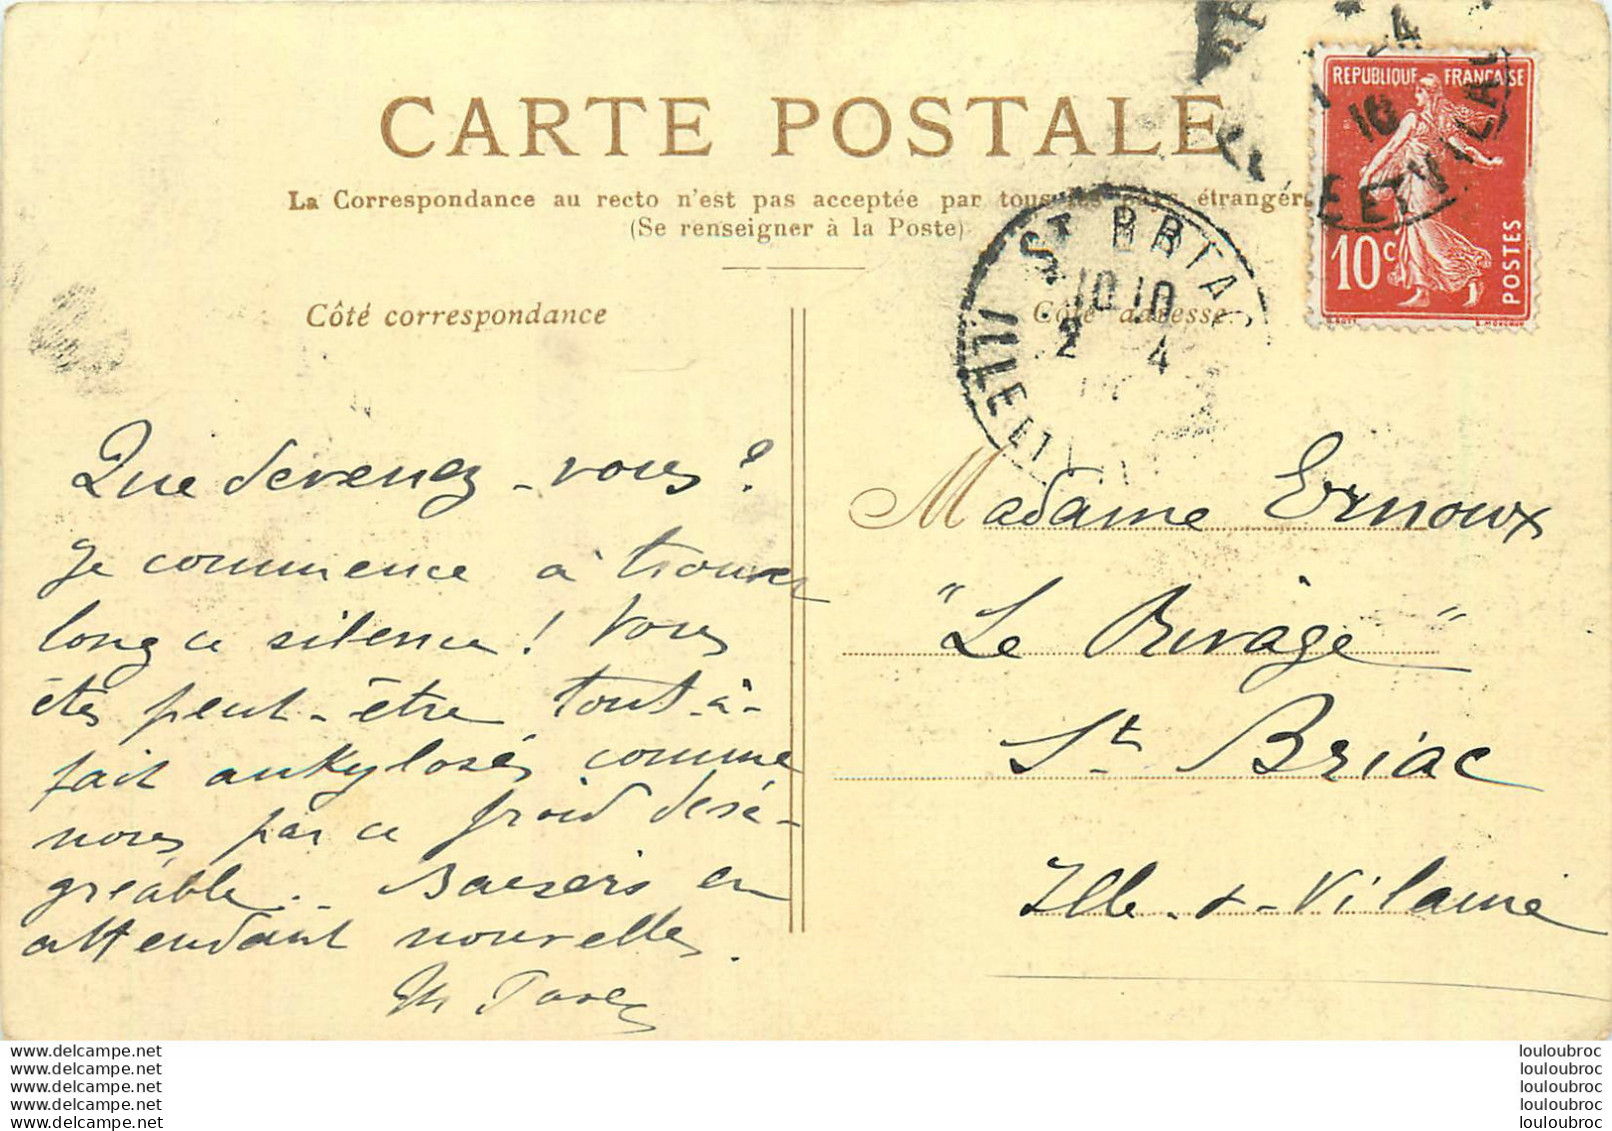 CARTE POSTALE
La Correspondance au recto n'est pas acceptée par tous les pays étrangers
(Se renseigner à la Poste)
Côté correspondance
Côté adresse
REPUBLIQUE FRANÇAISE
10c
POSTES
ST BRIAC
10 10
2 4
ILLE ET
16
ET VILAI
Que devenez-vous ?
Je commence à trouver
long ce silence ! Vous
êtes peut-être tout-à-
fait ankylosés comme
nous par ce froid désa-
gréable.. Baisers en
attendant nouvelles.
Madame Ernoux
"Le Rivage"
St Briac
Ille-&-Vilaine
www.delcampe.net
www.delcampe.net
www.delcampe.net
www.delcampe.net
www.delcampe.net
louloubroc
louloubroc
louloubroc
louloubroc
louloubroc